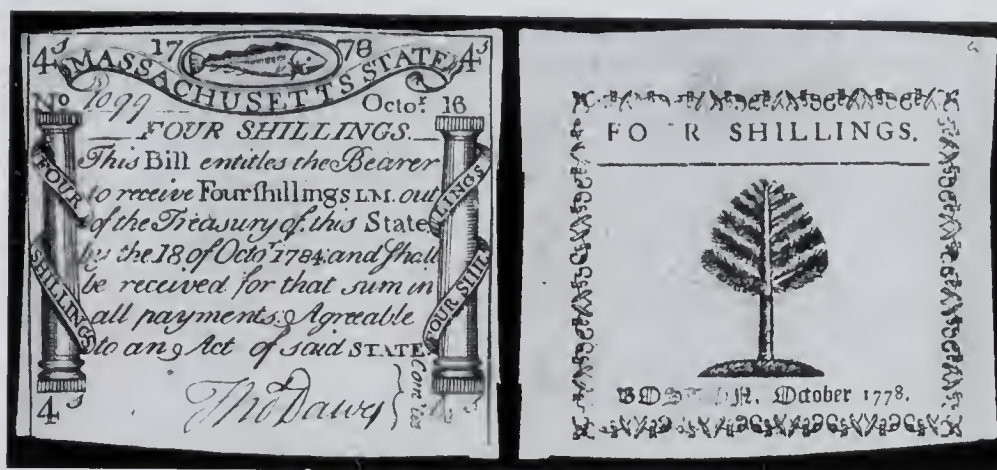 4s 17 78 4s
MASSACHUSETTS STATE
No 1099 Octor. 16
FOUR SHILLINGS.
This Bill entitles the Bearer
to receive Four ſhillings LM. out
of the Treasury of this State
by the 18 of Octor. 1784 and ſhall
be received for that sum in
all payments Agreable
to an Act of said STATE
FOUR
SHILLINGS
LLINGS
FOUR SHI
4s 4s
Tho Dawes
Com'tee
FO R SHILLINGS.
BOS N. October 1778.